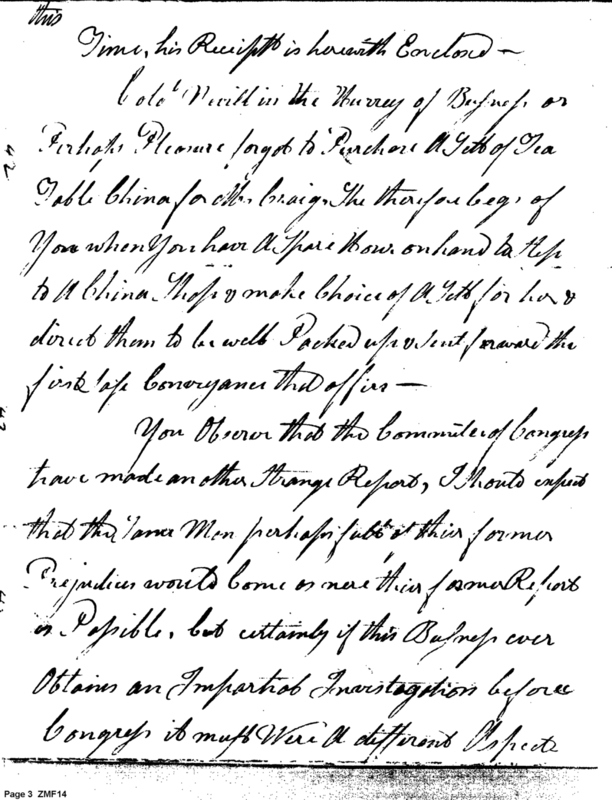 this
Time, his Receipt is herewith Enclosed —
Colo.l Nevill in the Hurrey of Busness or
Perhaps Pleasure forgot to Purchase A Sett of Tea
Table China for Mrs Craig, She therefore begs of
You when You have A Spare Hour on hand to Step
to A China Shop & make Choice of A Sett for her &
direct them to be well Packed up & Sent forward the
first Safe Conveyance that offers —
You Observe that the Committee of Congress
have made another Strange Report, I Should expect
that the Same Men perhaps full of their former
Prejudices would Come as nere their former Report
as Possible, but certainly if this Busness ever
Obtains an Impartial Investagation before
Congress it must Were A different Aspect
42
Page 3 ZMF14